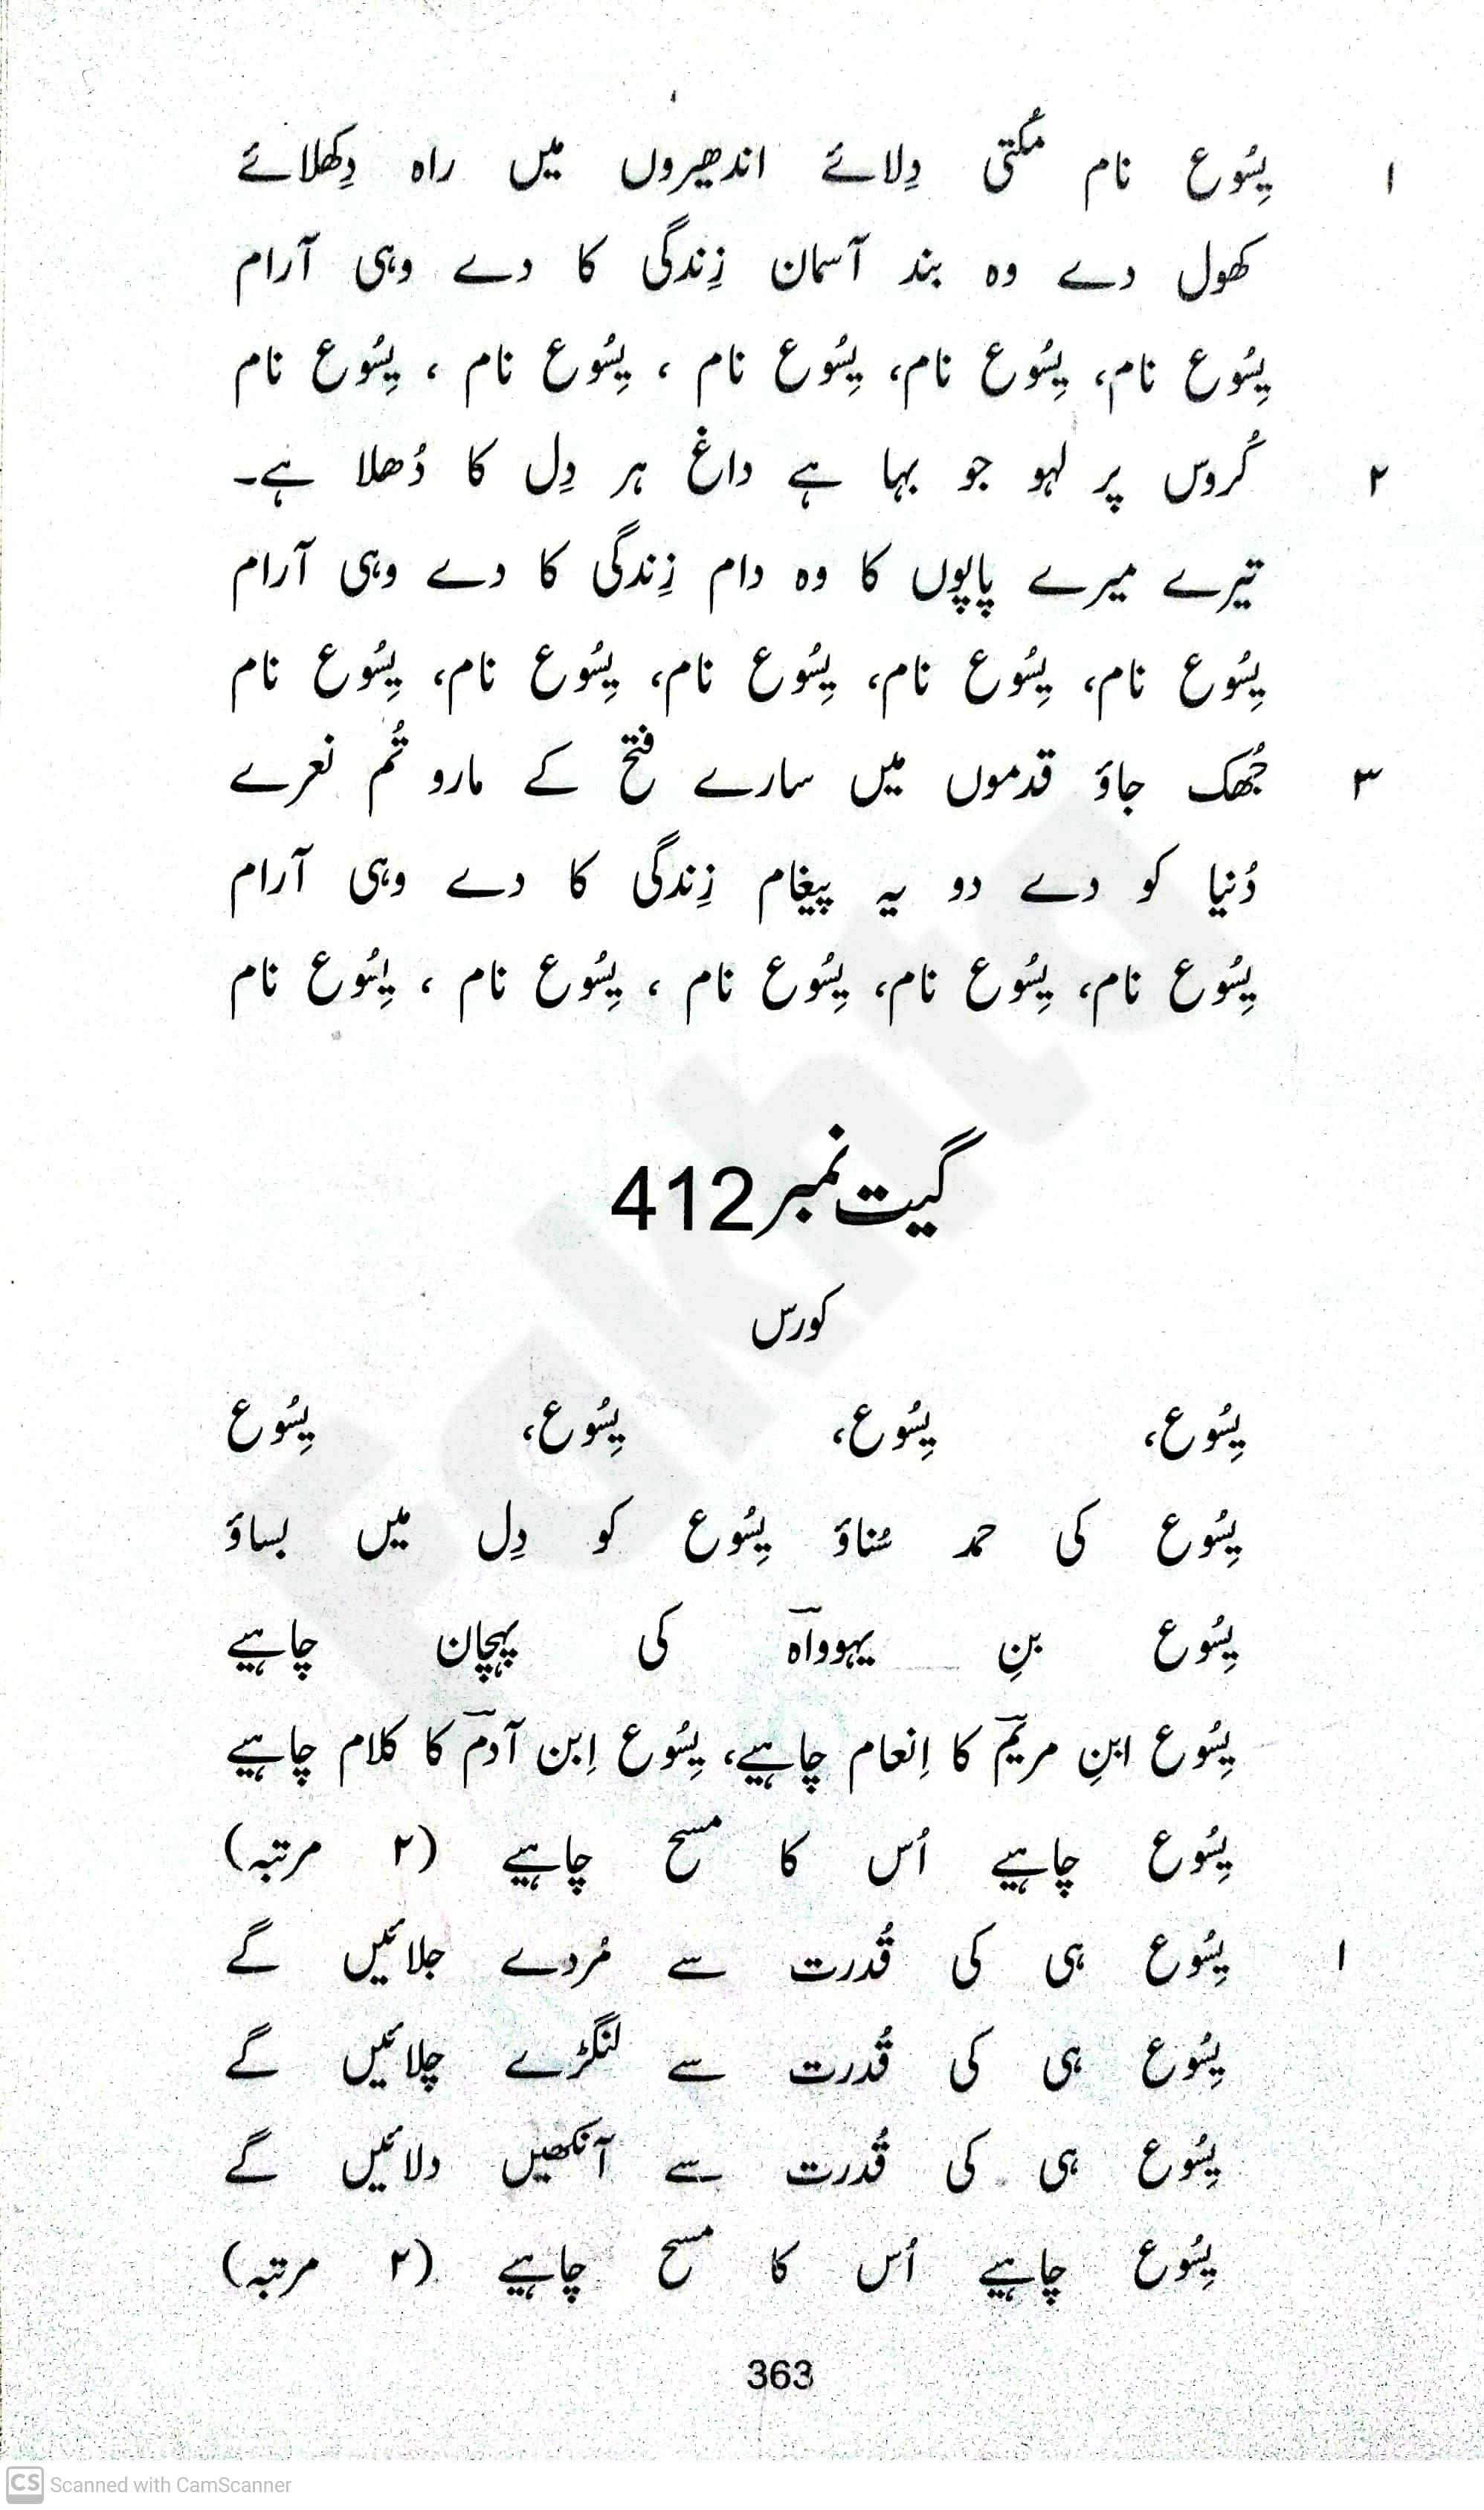 ۱ یِسُوع نام مُکتی دِلائے اندھیروں میں راہ دِکھلائے
کھول دے وہ بند آسمان زِندگی کا دے وہی آرام
یِسُوع نام، یِسُوع نام، یِسُوع نام ، یِسُوع نام ، یِسُوع نام
۲ کُروس پر لہو جو بہا ہے داغ ہر دِل کا دُھلا ہے۔
تیرے میرے پاپوں کا وہ دام زِندگی کا دے وہی آرام
یِسُوع نام، یِسُوع نام، یِسُوع نام، یِسُوع نام، یِسُوع نام
۳ جُھک جاؤ قدموں میں سارے فتح کے مارو تُم نعرے
دُنیا کو دے دو یہ پیغام زِندگی کا دے وہی آرام
یِسُوع نام، یِسُوع نام، یِسُوع نام ، یِسُوع نام ، یِسُوع نام
گیت نمبر 412
کورس
یِسُوع، یِسُوع، یِسُوع، یِسُوع
یِسُوع کی حمد سُناؤ یِسُوع کو دِل میں بساؤ
یِسُوع بنِ یہوواہؔ کی پہچان چاہیے
یِسُوع ابنِ مریمؔ کا اِنعام چاہیے، یِسُوع اِبن آدمؔ کا کلام چاہیے
یِسُوع چاہیے اُس کا مسح چاہیے (۲ مرتبہ)
۱ یِسُوع ہی کی قُدرت سے مُردے جلائیں گے
یِسُوع ہی کی قُدرت سے لنگڑے چلائیں گے
یِسُوع ہی کی قُدرت سے آنکھیں دلائیں گے
یِسُوع چاہیے اُس کا مسح چاہیے (۲ مرتبہ)
363
CS Scanned with CamScanner